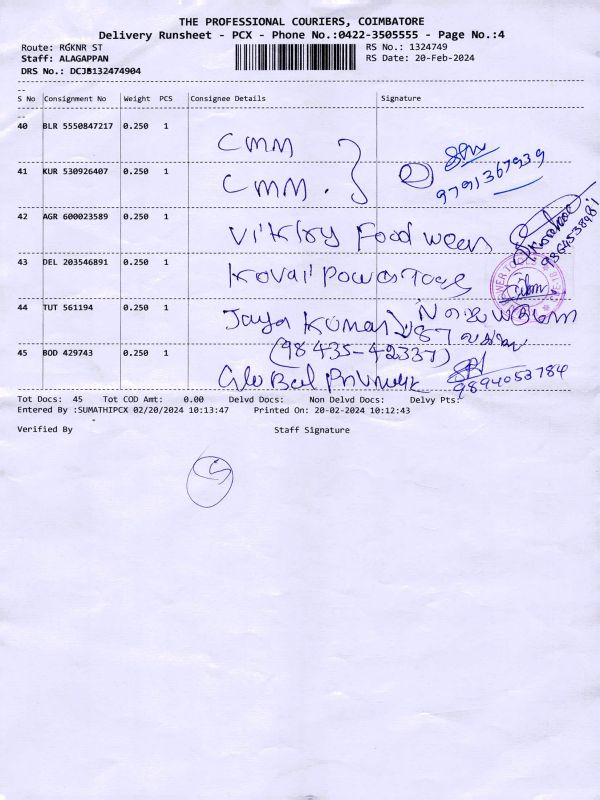 THE PROFESSIONAL COURIERS, COIMBATORE
Delivery Runsheet - PCX - Phone No.:0422-3505555 - Page No.:4
Route: RGKNR ST
RS No.: 1324749
Staff: ALAGAPPAN
RS Date: 20-Feb-2024
DRS No.: DCJB132474904
S No Consignment No Weight PCS Consignee Details Signature
40 BLR 5550847217 0.250 1 CMM
41 KUR 530926407 0.250 1 CMM. 9791367939
42 AGR 600023589 0.250 1 Food 9864538981
43 DEL 203546891 0.250 1 Kovai Power Tools
44 TUT 561194 0.250 1 Jaya Kumar 87
(98435-42337)
45 BOD 429743 0.250 1 Global 9894053784
Tot Docs: 45 Tot COD Amt: 0.00 Delvd Docs: Non Delvd Docs: Delvy Pts:
Entered By :SUMATHIPCX 02/20/2024 10:13:47 Printed On: 20-02-2024 10:12:43
Verified By Staff Signature